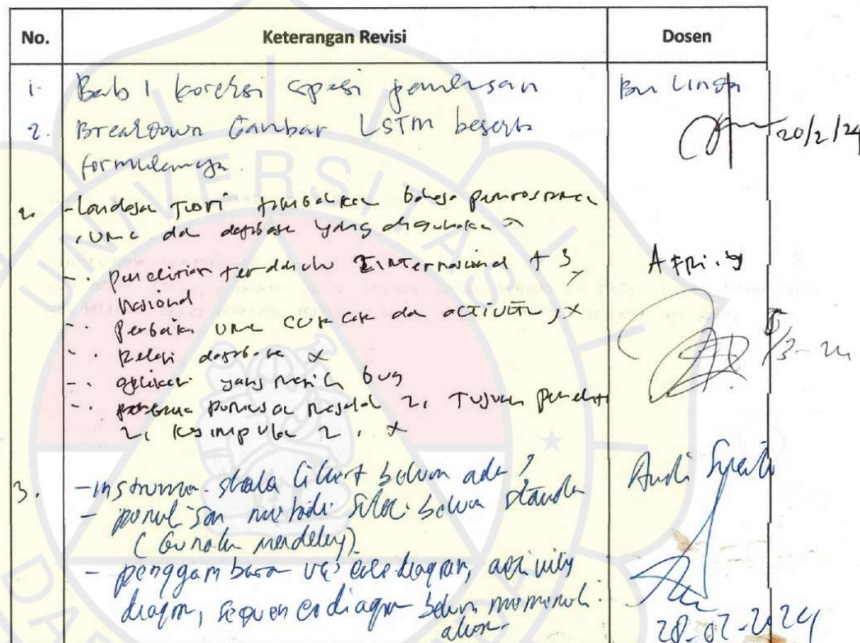 No. Keterangan Revisi Dosen
1. Bab 1 koreksi spasi penulisan Bu Linda
2. Breakdown Gambar LSTM beserta 20/2/24
formulanya.
2. - Landasan Teori tambahkan bahasa pemrograman
, UML dan database yang digunakan
- . penelitian terdahulu Internasional + 3, Afri
Nasional
- . perbaiki UML use case dan activity, x
- . Relasi database x 5/3-24
- . aplikasi yang masih bug
- . rumusan masalah 2, Tujuan peneliti
2, kesimpulan 2, x
3. - instrumen skala likert belum ada ? Andi
- penulisan metode sitasi belum standar
( Gunakan mendeley).
- penggambaran use case diagram, activity
diagram, sequence diagram belum memenuhi
aturan. 28-02-2024
UNIVERSITAS
DA